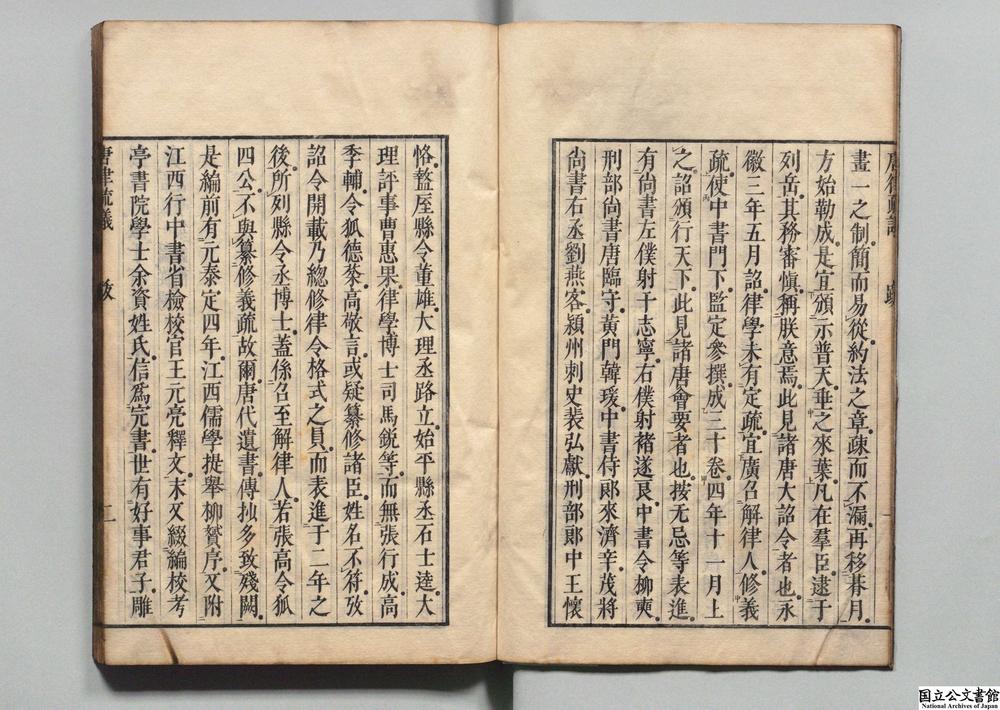 畫一之制簡而易從約法之章疎而不漏再移朞月
方始勒成是宜頒示普天垂之來葉凡在羣臣逮于
列岳其務審愼稱朕意焉此見諸唐大詔令者也永
徽三年五月詔律學未有定疏宜廣召解律人修義
疏使中書門下監定參撰成三十卷四年十一月上
之詔頒行天下此見諸唐會要者也按无忌等表進
有尚書左僕射于志寧右僕射褚遂良中書令柳奭
刑部尚書唐臨守黃門韓瑗中書侍郞來濟辛茂將
尚書右丞劉燕客潁州刺史裴弘獻刑部郞中王懷
恪盩厔縣令董雄大理丞路立始平縣丞石士逵大
理評事曹惠果律學博士司馬銳等而無張行成高
季輔令狐德棻高敬言或疑纂修諸臣姓名不符攷
詔令開載乃總修律令格式之員而表進于二年之
後所列縣令丞博士蓋係召至解律人若張高令狐
四公不與纂修義疏故爾唐代遺書傳抄多致殘闕
是編前有元泰定四年江西儒學提舉柳贇序又附
江西行中書省檢校官王元亮釋文末又綴編校考
亭書院學士余資姓氏信爲完書世有好事君子雕
唐律疏義 二
国立公文書館
National Archives of Japan